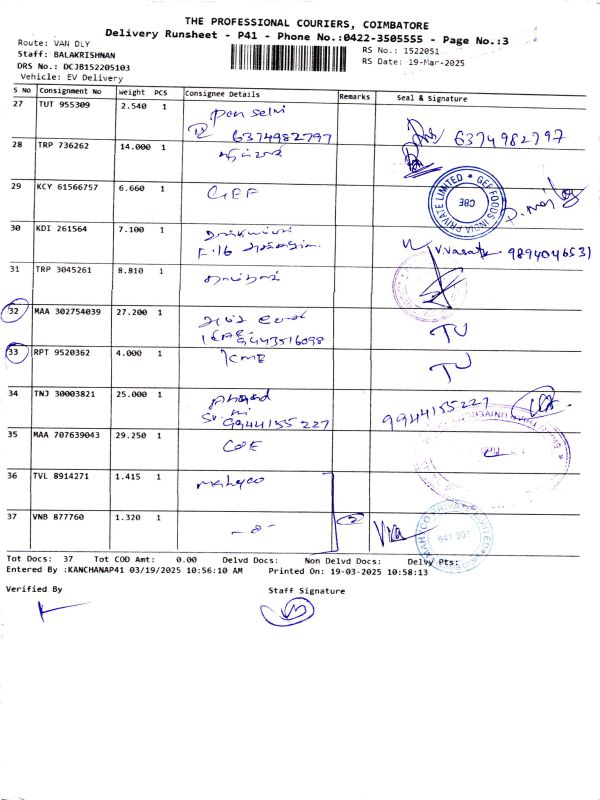 THE PROFESSIONAL COURIERS, COIMBATORE
Delivery Runsheet - P41 - Phone No.:0422-3505555 - Page No.:3
Route: VAN DLY
Staff: BALAKRISHNAN
DRS No.: DCJB152205103
Vehicle: EV Delivery
RS No.: 1522051
RS Date: 19-Mar-2025
S No Consignment No Weight PCS Consignee Details Remarks Seal & Signature
27 TUT 955309 2.540 1 pon selvi
6374982797 6374982797
28 TRP 736262 14.000 1
29 KCY 61566757 6.660 1 GEF
GEF FOODS INDIA PRIVATE LIMITED
CBE
30 KDI 261564 7.100 1
F.16
V.Vasath 9894046531
31 TRP 3045261 8.810 1
32 MAA 302754039 27.200 1 TU
9443516098
33 RPT 9520362 4.000 1 KMB TU
34 TNJ 30003821 25.000 1 Anand
9944155227 9944155227
35 MAA 707639043 29.250 1 COE
36 TVL 8914271 1.415 1 Mahyco
37 VNB 877760 1.320 1 - 0 - 2
MAHYCO PRIVATE LIMITED
641 007
Tot Docs: 37 Tot COD Amt: 0.00 Delvd Docs: Non Delvd Docs: Delvy Pts:
Entered By :KANCHANAP41 03/19/2025 10:56:10 AM Printed On: 19-03-2025 10:58:13
Verified By Staff Signature